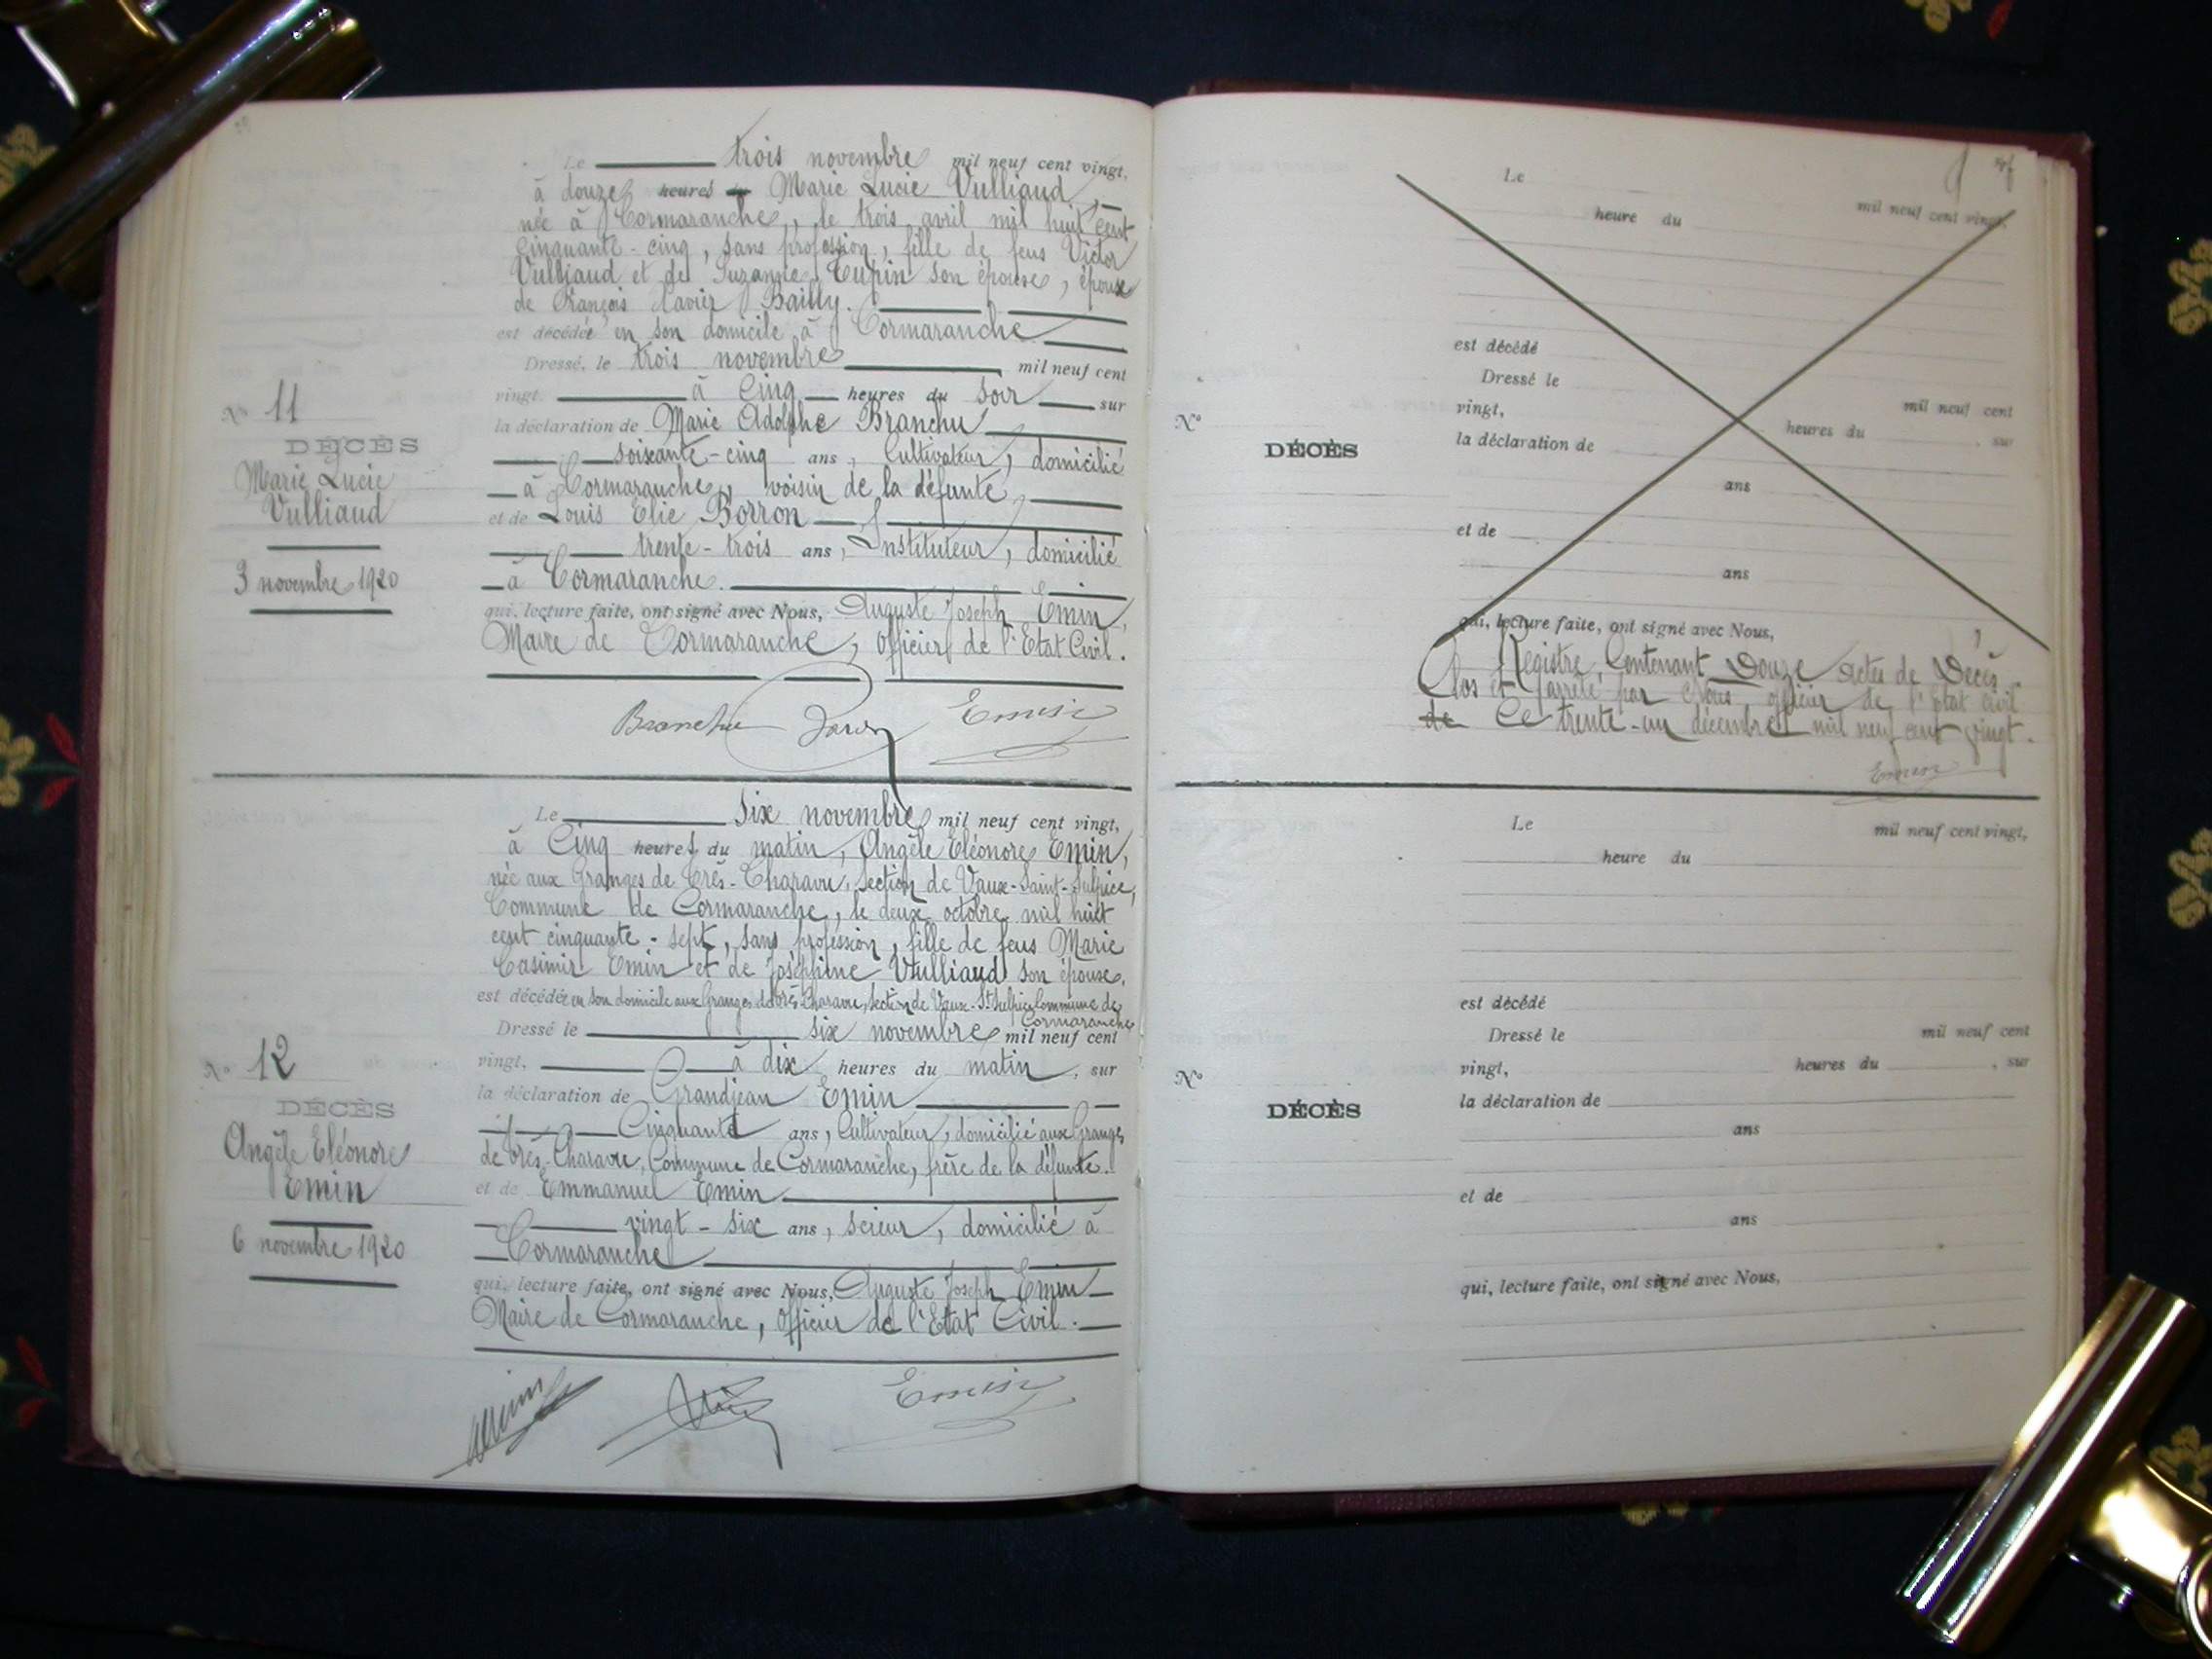 Le trois novembre mil neuf cent vingt,
à douze heures Marie Lucie Vulliaud,
née à Cormaranche, le trois avril mil huit cent
cinquante-cinq, sans profession, fille de feus Victor
Vulliaud et de Suzanne Tupin son épouse, épouse
de François Xavier Bailly.
est décédée en son domicile à Cormaranche
Dressé, le trois novembre mil neuf cent
vingt. à Cinq heures du soir sur
la déclaration de Marie Adolphe Branchu
soixante-cinq ans, Cultivateur, domicilié
à Cormaranche, voisin de la défunte,
et de Louis Elie Borron
trente-trois ans, Instituteur, domicilié
à Cormaranche.
qui, lecture faite, ont signé avec Nous, Auguste Joseph Emin,
Maire de Cormaranche, Officier de l'Etat Civil.
Branchu Emin
No 11
DÉCÈS
Marie Lucie
Vulliaud
3 novembre 1920
Le six novembre mil neuf cent vingt,
à Cinq heures du matin, Angèle Eléonore Emin,
née aux Granges de Très-Charavu, section de Vaux-Saint-Sulpice,
Commune de Cormaranche, le deux octobre mil huit
cent cinquante-sept, sans profession, fille de feus Marie
Casimir Emin et de Joséphine Vulliaud son épouse.
est décédée en son domicile aux Granges de Très-Charavu, section de Vaux-St Sulpice Commune de
Cormaranche
Dressé le six novembre mil neuf cent
vingt, à dix heures du matin, sur
la déclaration de Grandjean Emin
Cinquante ans, Cultivateur, domicilié aux Granges
de Très-Charavu, Commune de Cormaranche, frère de la défunte.
et de Emmanuel Emin
vingt-six ans, scieur, domicilié à
Cormaranche
qui, lecture faite, ont signé avec Nous, Auguste Joseph Emin
Maire de Cormaranche, Officier de l'Etat Civil.
Emin
No 12
DÉCÈS
Angèle Eléonore
Emin
6 novembre 1920
9
Le mil neuf cent vingt,
heure du
est décédé
Dressé le mil neuf cent
vingt, heures du , sur
la déclaration de
ans
et de
ans
qui, lecture faite, ont signé avec Nous,
No
DÉCÈS
Registre Contenant Douze actes de Décès,
Clos et arrêté par Nous officier de l'Etat civil
de Ce trente-un décembre mil neuf cent vingt.
Emin
Le mil neuf cent vingt,
heure du
est décédé
Dressé le mil neuf cent
vingt, heures du , sur
la déclaration de
ans
et de
ans
qui, lecture faite, ont signé avec Nous,
No
DÉCÈS